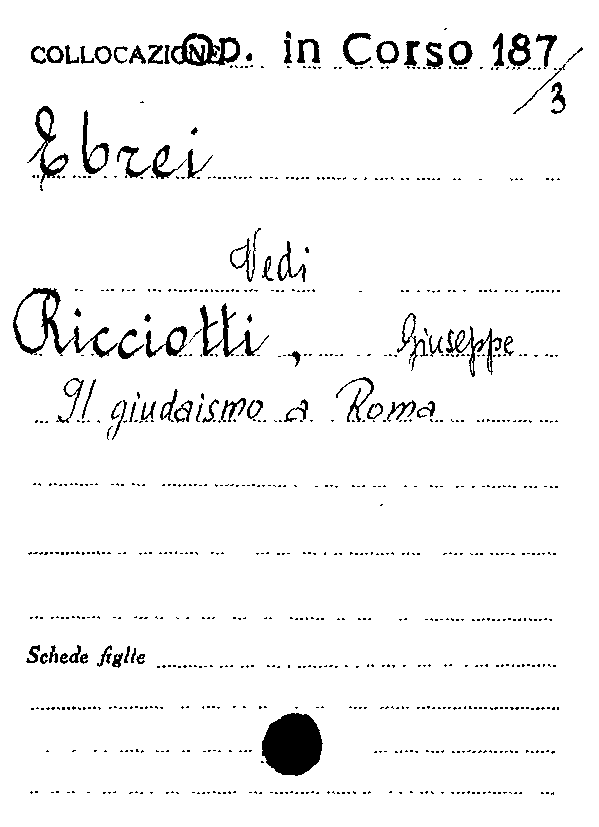 COLLOCAZIONE Op. in Corso 187/3
Ebrei
Vedi
Ricciotti, Giuseppe
Il giudaismo a Roma
Schede figlie